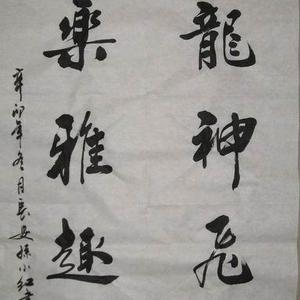 龍神飛
樂雅趣
辛卯年冬月長安孫小紅書